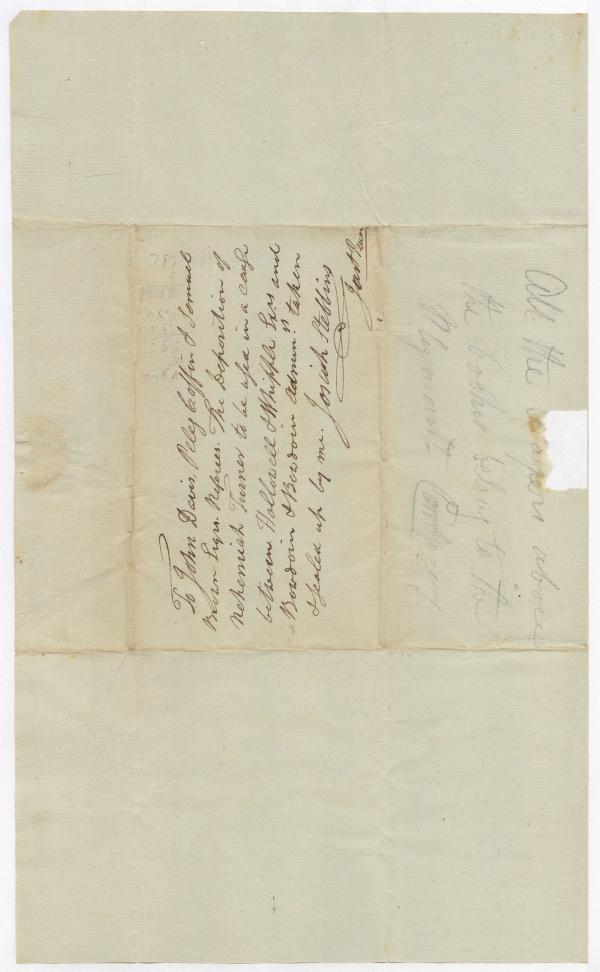 To John Davis, Peleg Coffin & Samuel
Brown Esqrs. Referees. The Deposition of
Nehemiah Turner to be used in a cause
between Hollowell & Whipple Exrs and
Bowdoin & Bowdoin Admin.rs taken
& sealed up by me. Josiah Stebbins
Just Peace
All the above
the belong to the
Plymouth